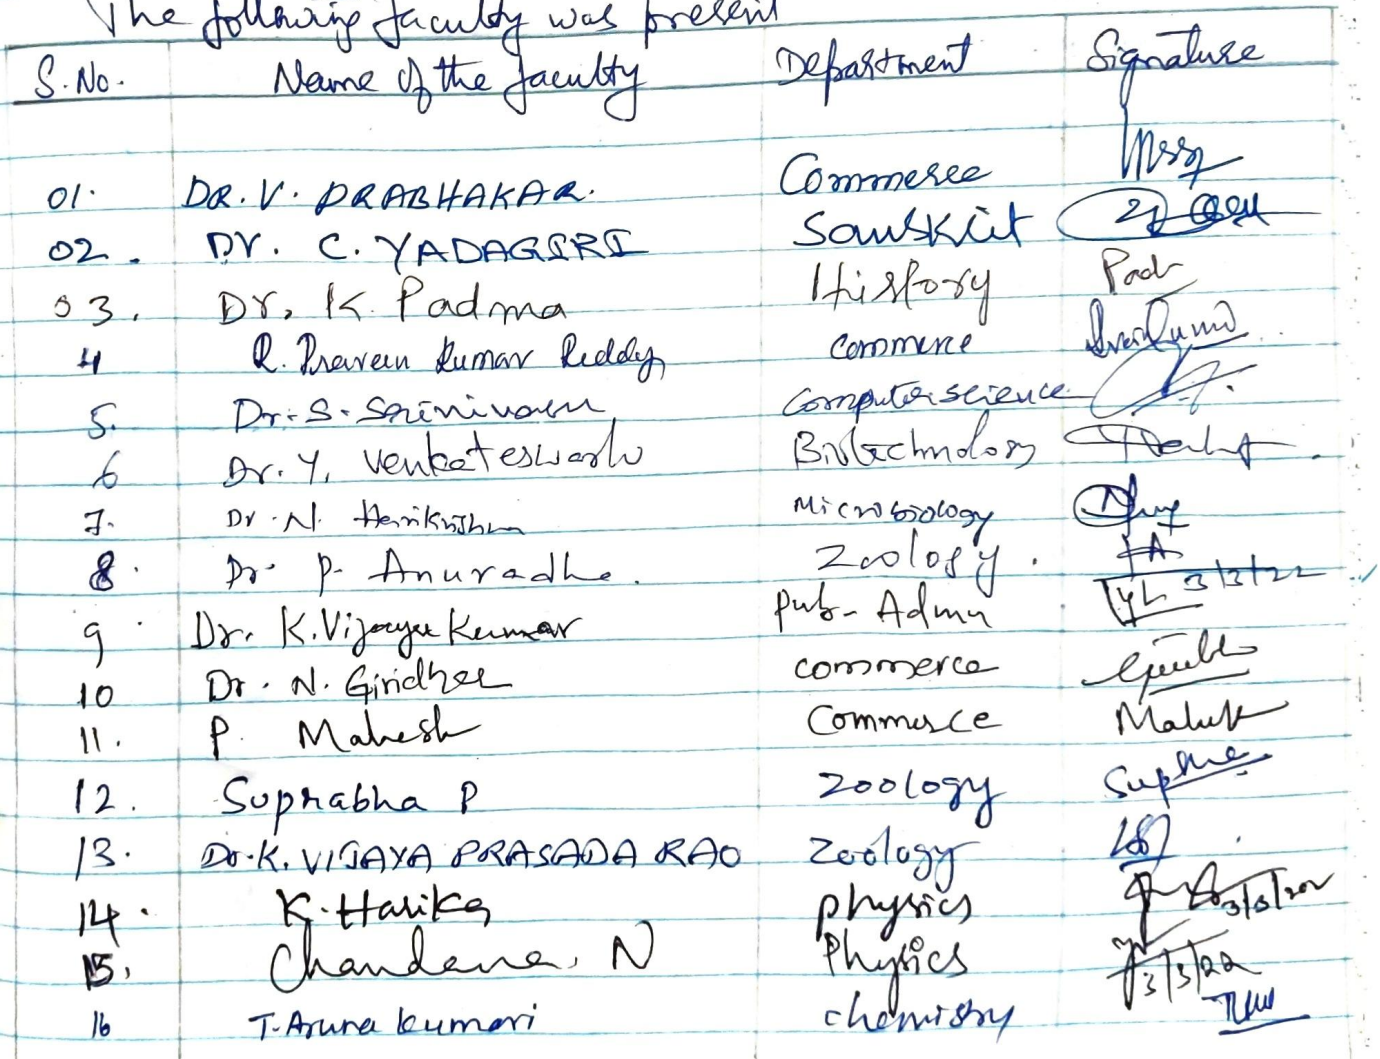 The following faculty was present
S.No. Name of the faculty Department Signature
01. DR. V. PRABHAKAR. Commerce
02. Dr. C. YADAGIRI Sanskrit
03. Dr. K. Padma History Pad
4 R. Praveen Kumar Reddy commerce
5. Dr. S. Srinivasu Computer science
6 Dr. Y. Venkateswarlu Biotechnology
7. Dr. N. Harikrishna Microbiology
8. Dr. P. Anuradha. Zoology.
9. Dr. K. Vijaya Kumar Pub-Admn 3/3/22
10 Dr. N. Giridher commerce
11. P. Mahesh Commerce
12. Suprabha P Zoology
13. Dr. K. VIJAYA PRASADA RAO Zoology
14. K. Harika physics
15. Chandana. N Physics 3/3/22
16 T. Aruna kumari chemistry